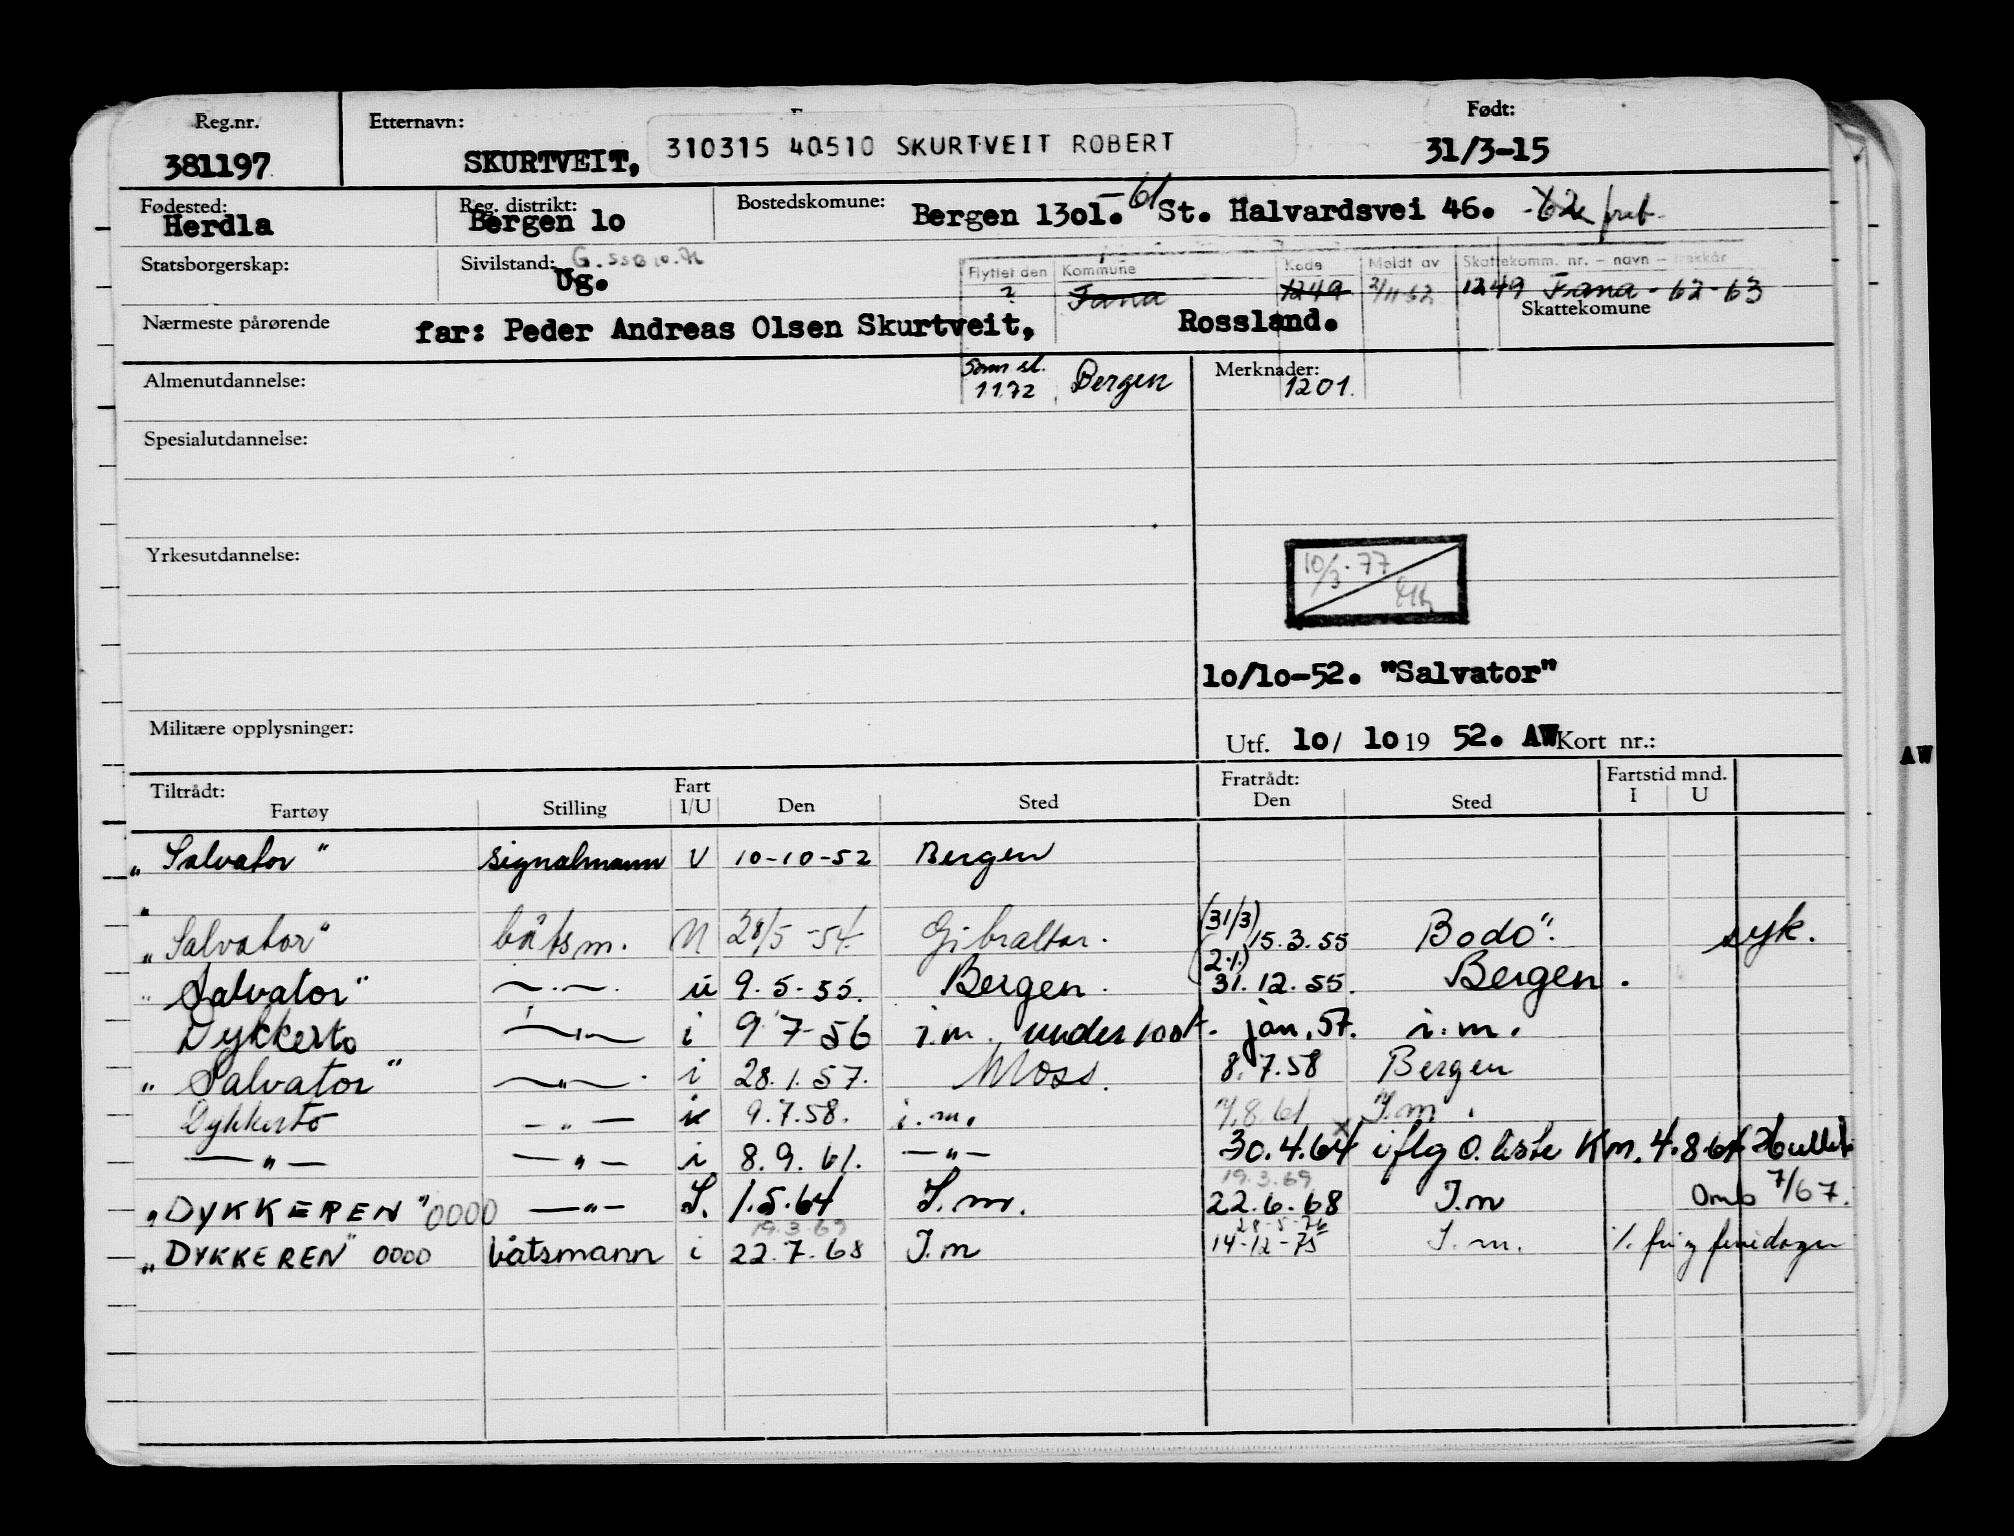 Reg.nr. Etternavn: Født:
381197 SKURTVEIT, 310315 40510 SKURTVEIT ROBERT 31/3-15
Fødested: Reg. distrikt: Bostedskomune:
Herdla Bergen lo Bergen 13ol. -61 St. Halvardsvei 46. -62
Statsborgerskap: Sivilstand: G. SSB 10.71
Ug.
Flyttet den Kommune Kode Meldt av Skattekomm. nr. - navn - trekkår
? Fana 1249 2/11-62 1249 Fana - 62-63
Nærmeste pårørende far: Peder Andreas Olsen Skurtveit, Rossland. Skattekomune
Almenutdannelse: 1172 Bergen Merknader: 1201.
Spesialutdannelse:
Yrkesutdannelse:
10/3-77
lo/lo-52. "Salvator"
Militære opplysninger: Utf. lo/ lo 19 52. AW Kort nr.:
AW
Tiltrådt: Fart Fratrådt: Fartstid mnd.
Fartøy Stilling I/U Den Sted Den Sted I U
„Salvator" signalmann U 10-10-52 Bergen
„
„Salvator" båtsm. U 28/5-54 Gibraltar. (31/3) 15.3.55 Bodö". syk.
„Salvator" -"- u 9.5-55. Bergen. (2.1) 31.12.55. Bergen.
Dykkerto -"- i 9 7-56 i.m. under 100t. jan. 57. i.m.
„Salvator" -"- i 28.1.57. Moss. 8.7.58 Bergen
Dykkerto -"- i 9.7.58. i.m. 14.8.61 I.m.
-"- -"- i 8.9.61. -"- 30.4.64 iflg O. liste Km. 4.8.64
19.3.69
„DYKKEREN" 0000 -"- I. 1.5.64 I.m. 22.6.68 I.m Omb 7/67.
19.3.69 28-5-76
„DYKKEREN" 0000 båtsmann i 22.7.68 I.m 14-12-75 I.m. %. fri og feriedager